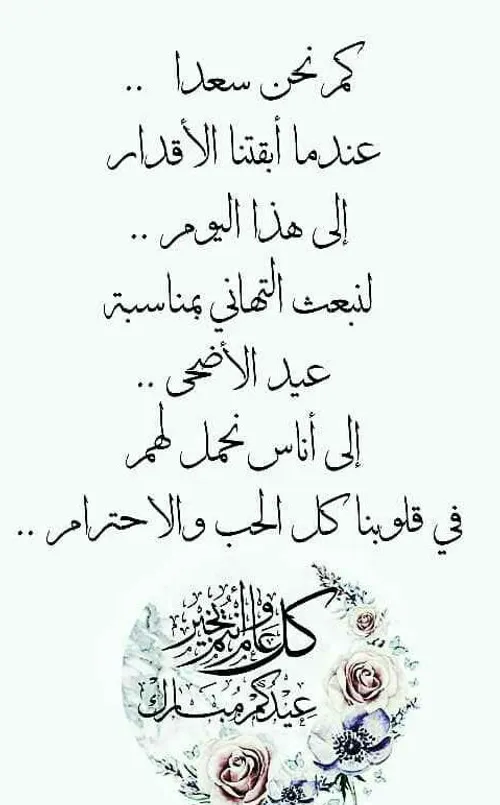 كم نحن سعدا ..
عندما أبقتنا الأقدار
إلى هذا اليوم ..
لنبعث التهاني بمناسبة
عيد الأضحى ..
إلى أناس نحمل لهم
في قلوبنا كل الحب والاحترام ..
كل عام وأنتم بخير
عِيدُكُم مُبَارَك